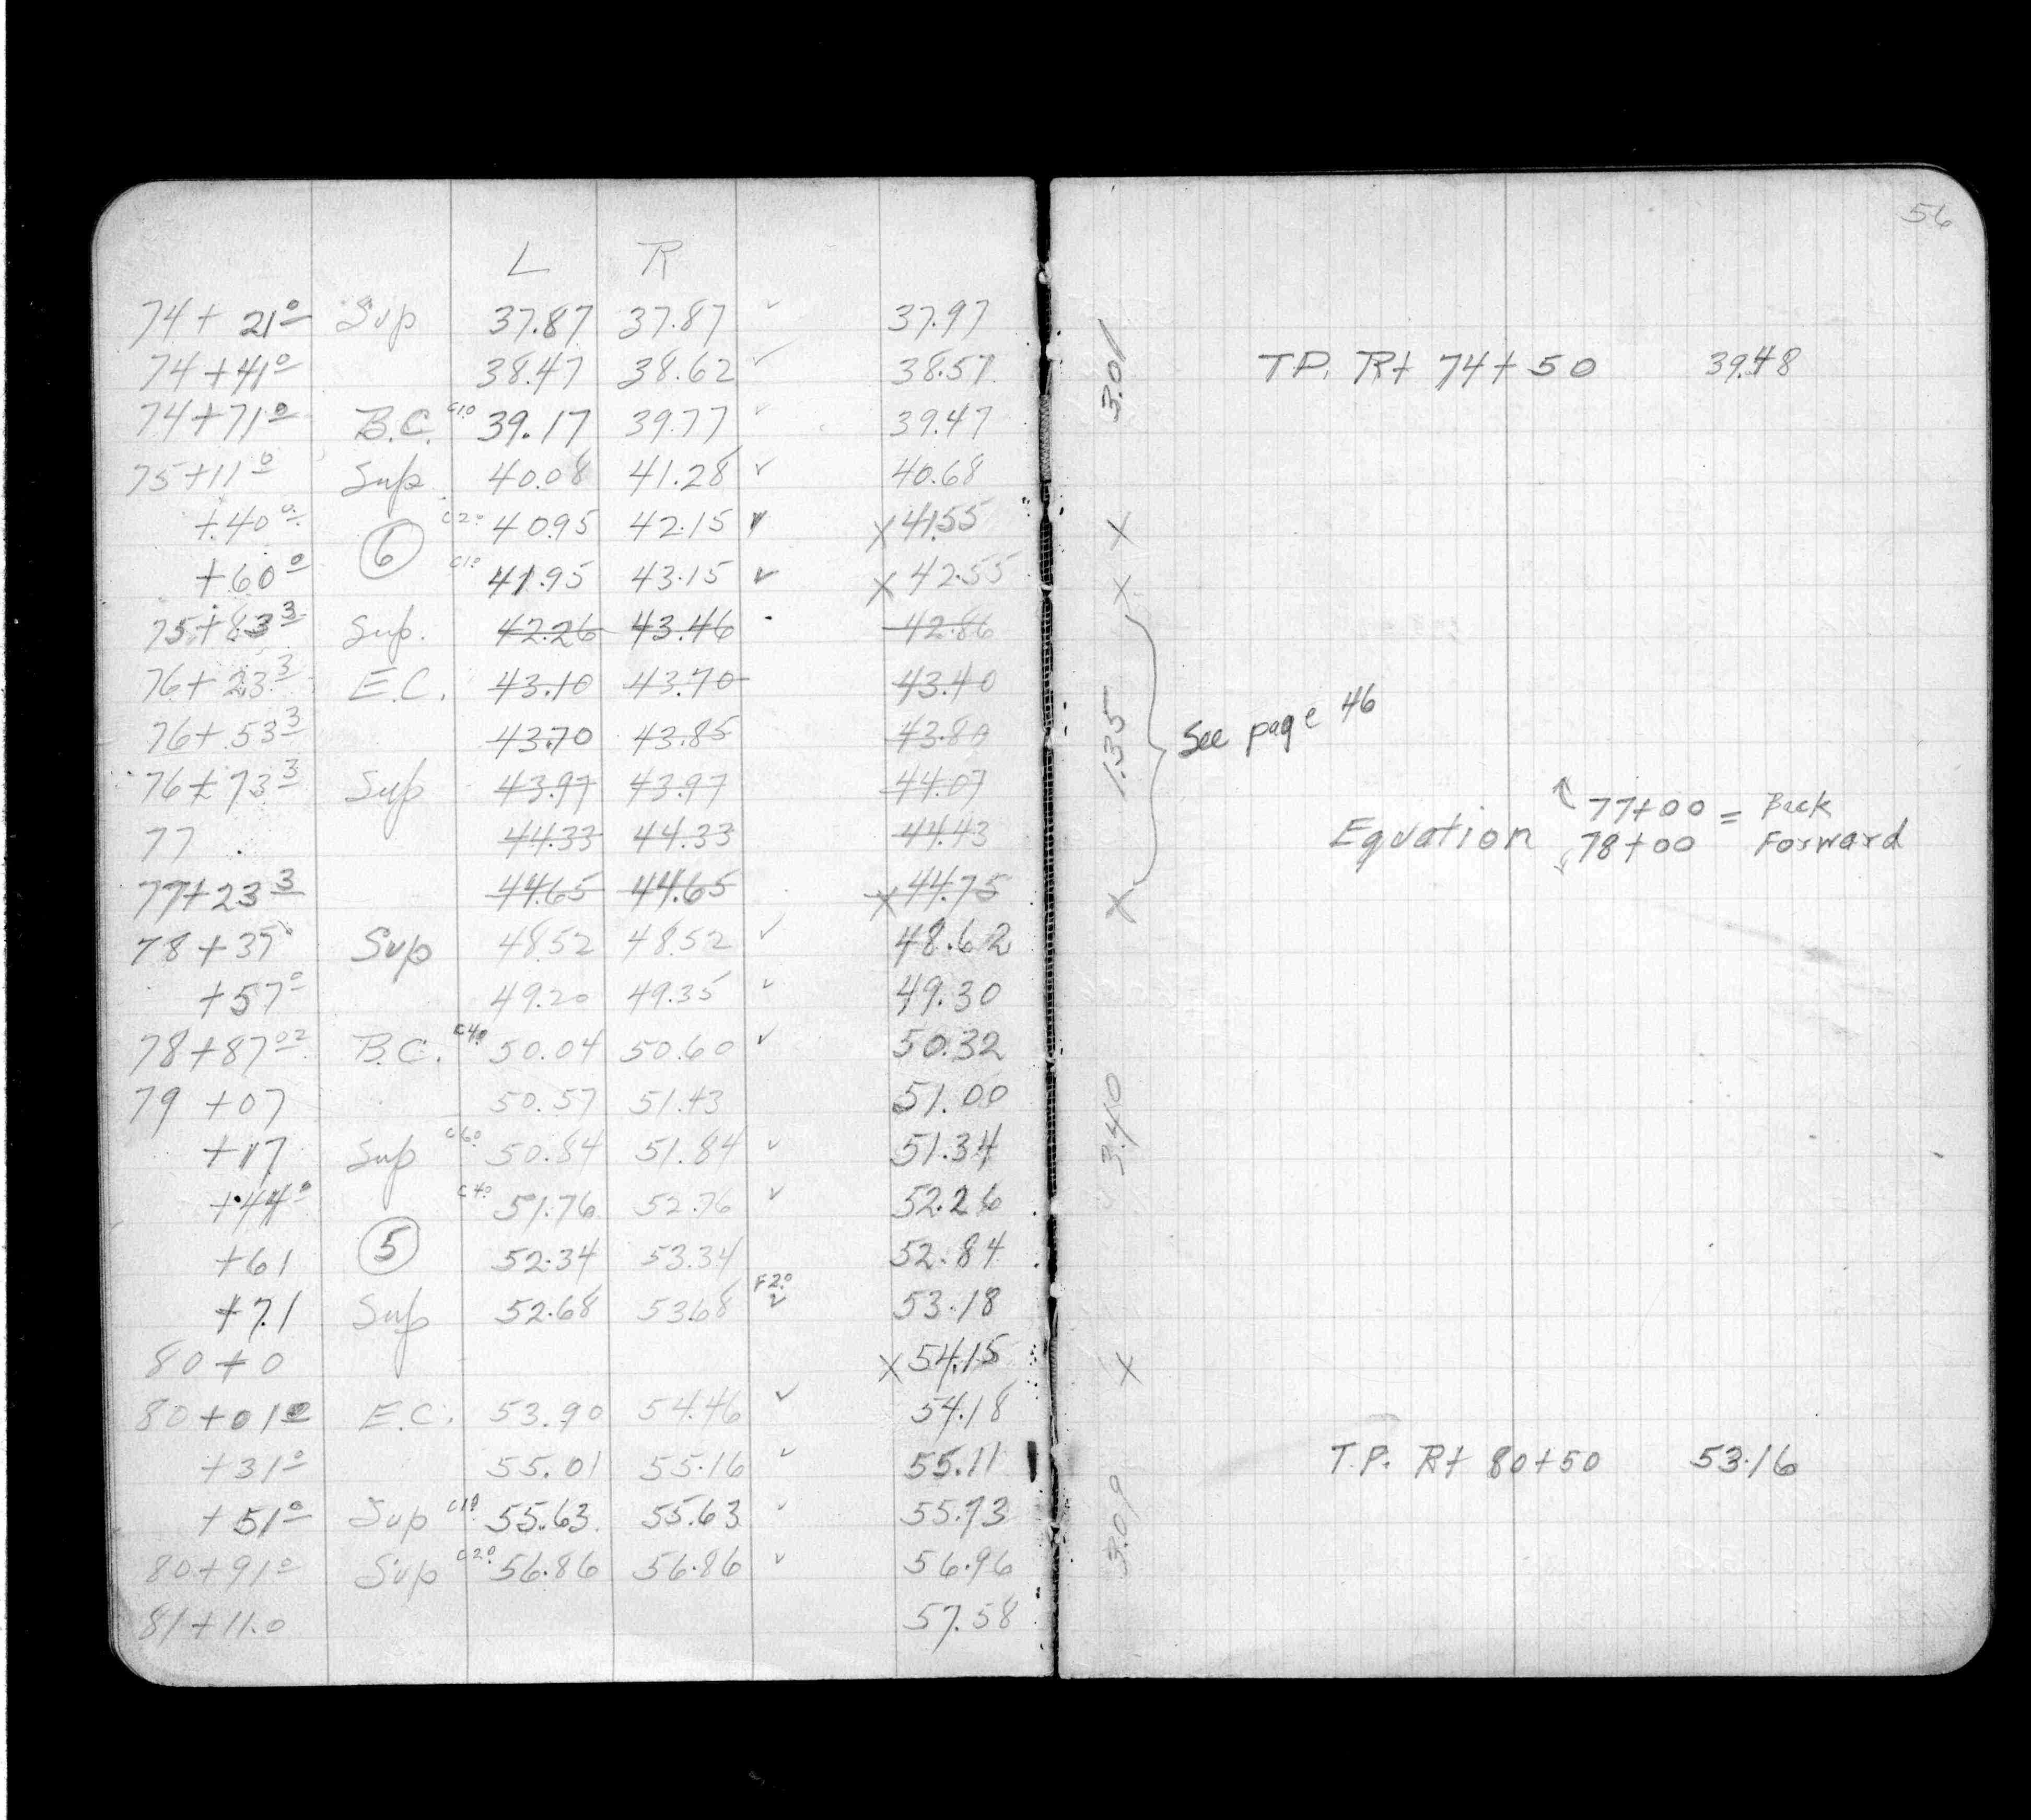 L R
74+21⁰ Sup 37.87 37.87 ✓ 37.97
74+41⁰ 38.47 38.62 ✓ 38.57
74+71⁰ B.C. C1.0 39.17 39.77 ✓ 39.47
75+11⁰ Sup 40.08 41.28 ✓ 40.68
+40⁰ C2.0 40.95 42.15 ✓ X 41.55
⑥
+60⁰ C1.0 41.95 43.15 ✓ X 42.55
75+83³ Sup. 42.26 43.46 42.86
76+23³ E.C. 43.10 43.70 43.40
76+53³ 43.70 43.85 43.80
76+73³ Sup 43.97 43.97 44.07
77 44.33 44.33 44.43
77+23³ 44.65 44.65 X 44.75
78+37⁰ Sup 48.52 48.52 ✓ 48.62
+57⁰ 49.20 49.35 ✓ 49.30
78+87⁰² B.C. C4.0 50.04 50.60 ✓ 50.32
79 +07 50.57 51.43 51.00
+17 Sup C6.0 50.84 51.84 ✓ 51.34
+44⁰ C4.0 51.76 52.76 ✓ 52.26
+61 ⑤ 52.34 53.34 52.84
+71 Sup 52.68 53.68 F2.0 ✓ 53.18
80+0 X 54.15
80+01⁰ E.C. 53.90 54.46 ✓ 54.18
+31⁰ 55.01 55.16 ✓ 55.11
+51⁰ Sup C1.0 55.63 55.63 ✓ 55.73
80+91⁰ Sup C2.0 56.86 56.86 ✓ 56.96
81+11.0 57.58
56
3.01
T.P. Rt 74+50 39.48
X
X
1.35
See page 46
Equation 77+00 = Back
78+00 Forward
X
3.40
X
T.P. Rt 80+50 53.16
3.09